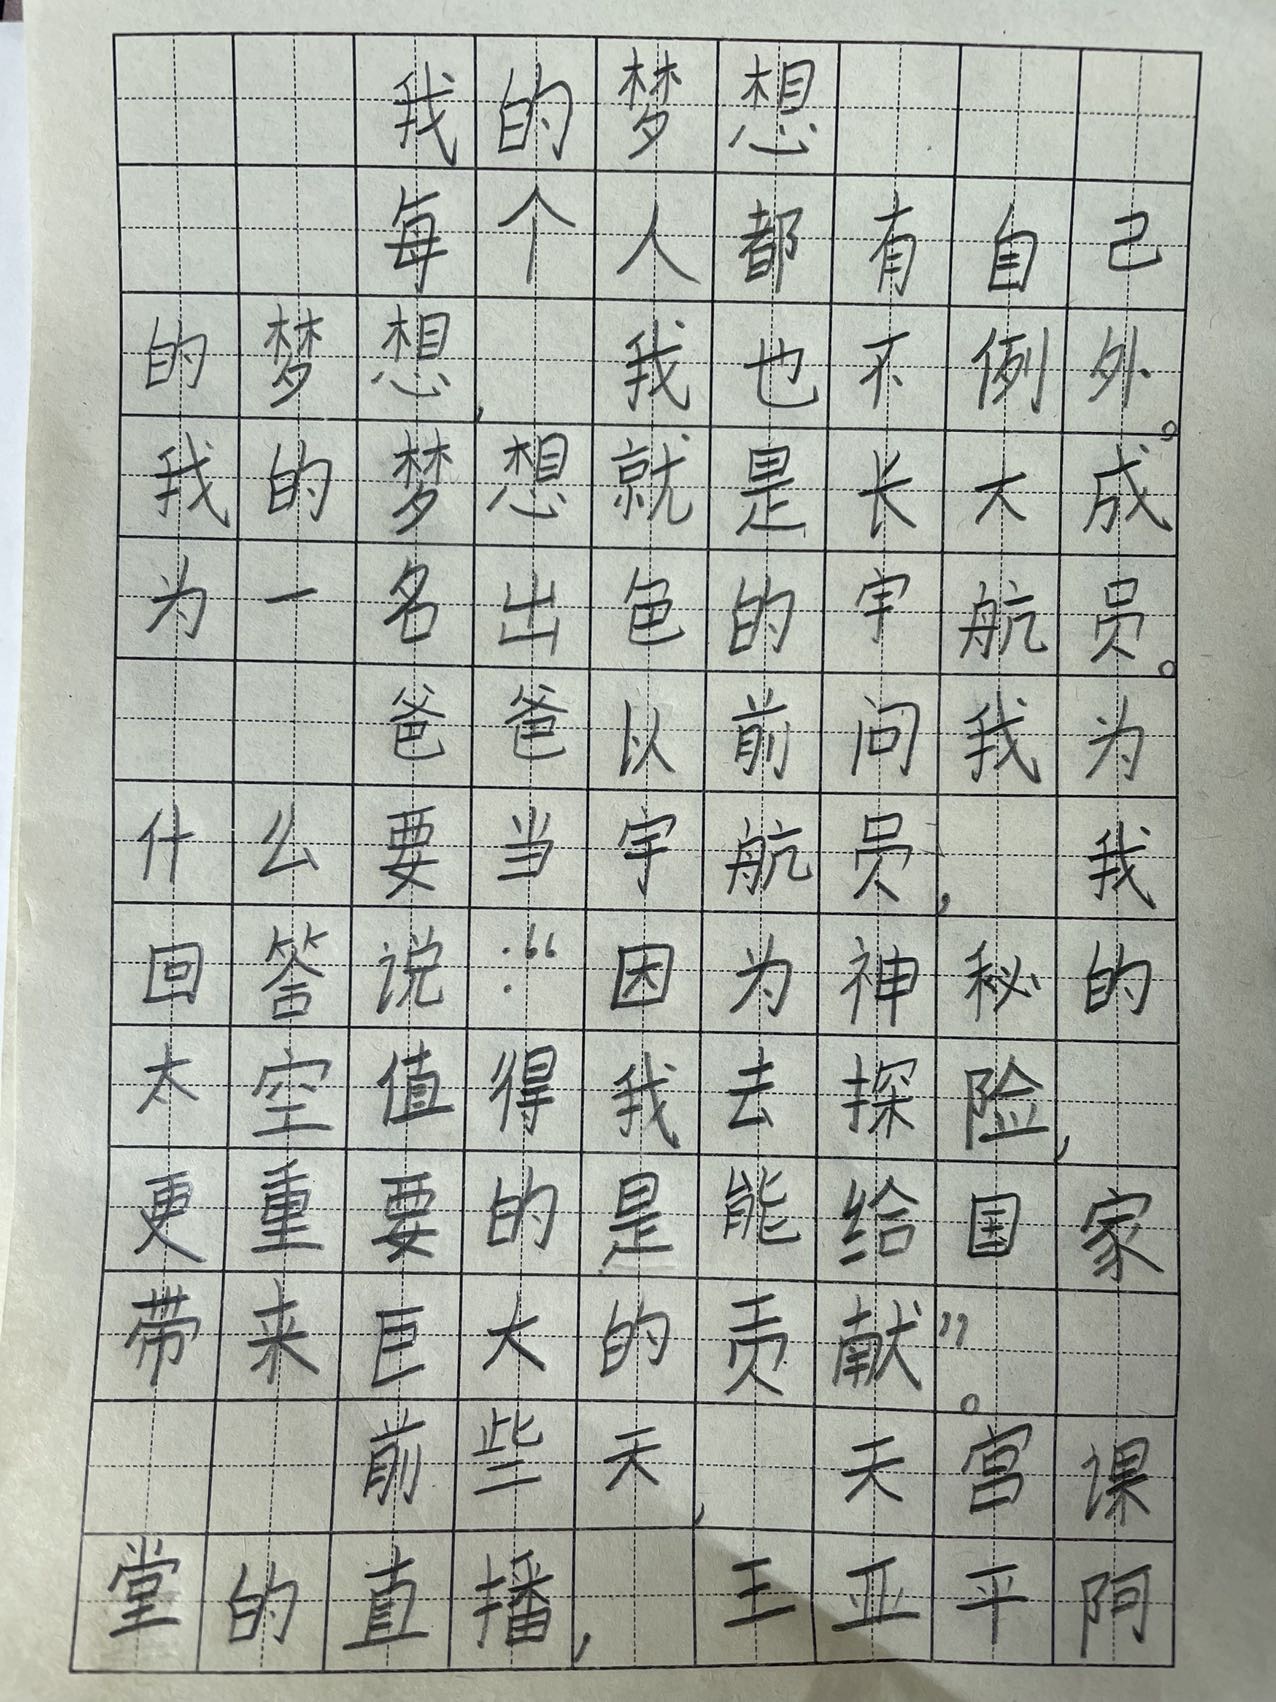 我的梦想
每个人都有自己
的梦想，我也不例外。
我的梦想就是长大成
为一名出色的宇航员。
爸爸以前问我为
什么要当宇航员，我
回答说：“因为神秘的
太空值得我去探险，
更重要的是能给国家
带来巨大的贡献”。
前些天，天宫课
堂的直播，王亚平阿